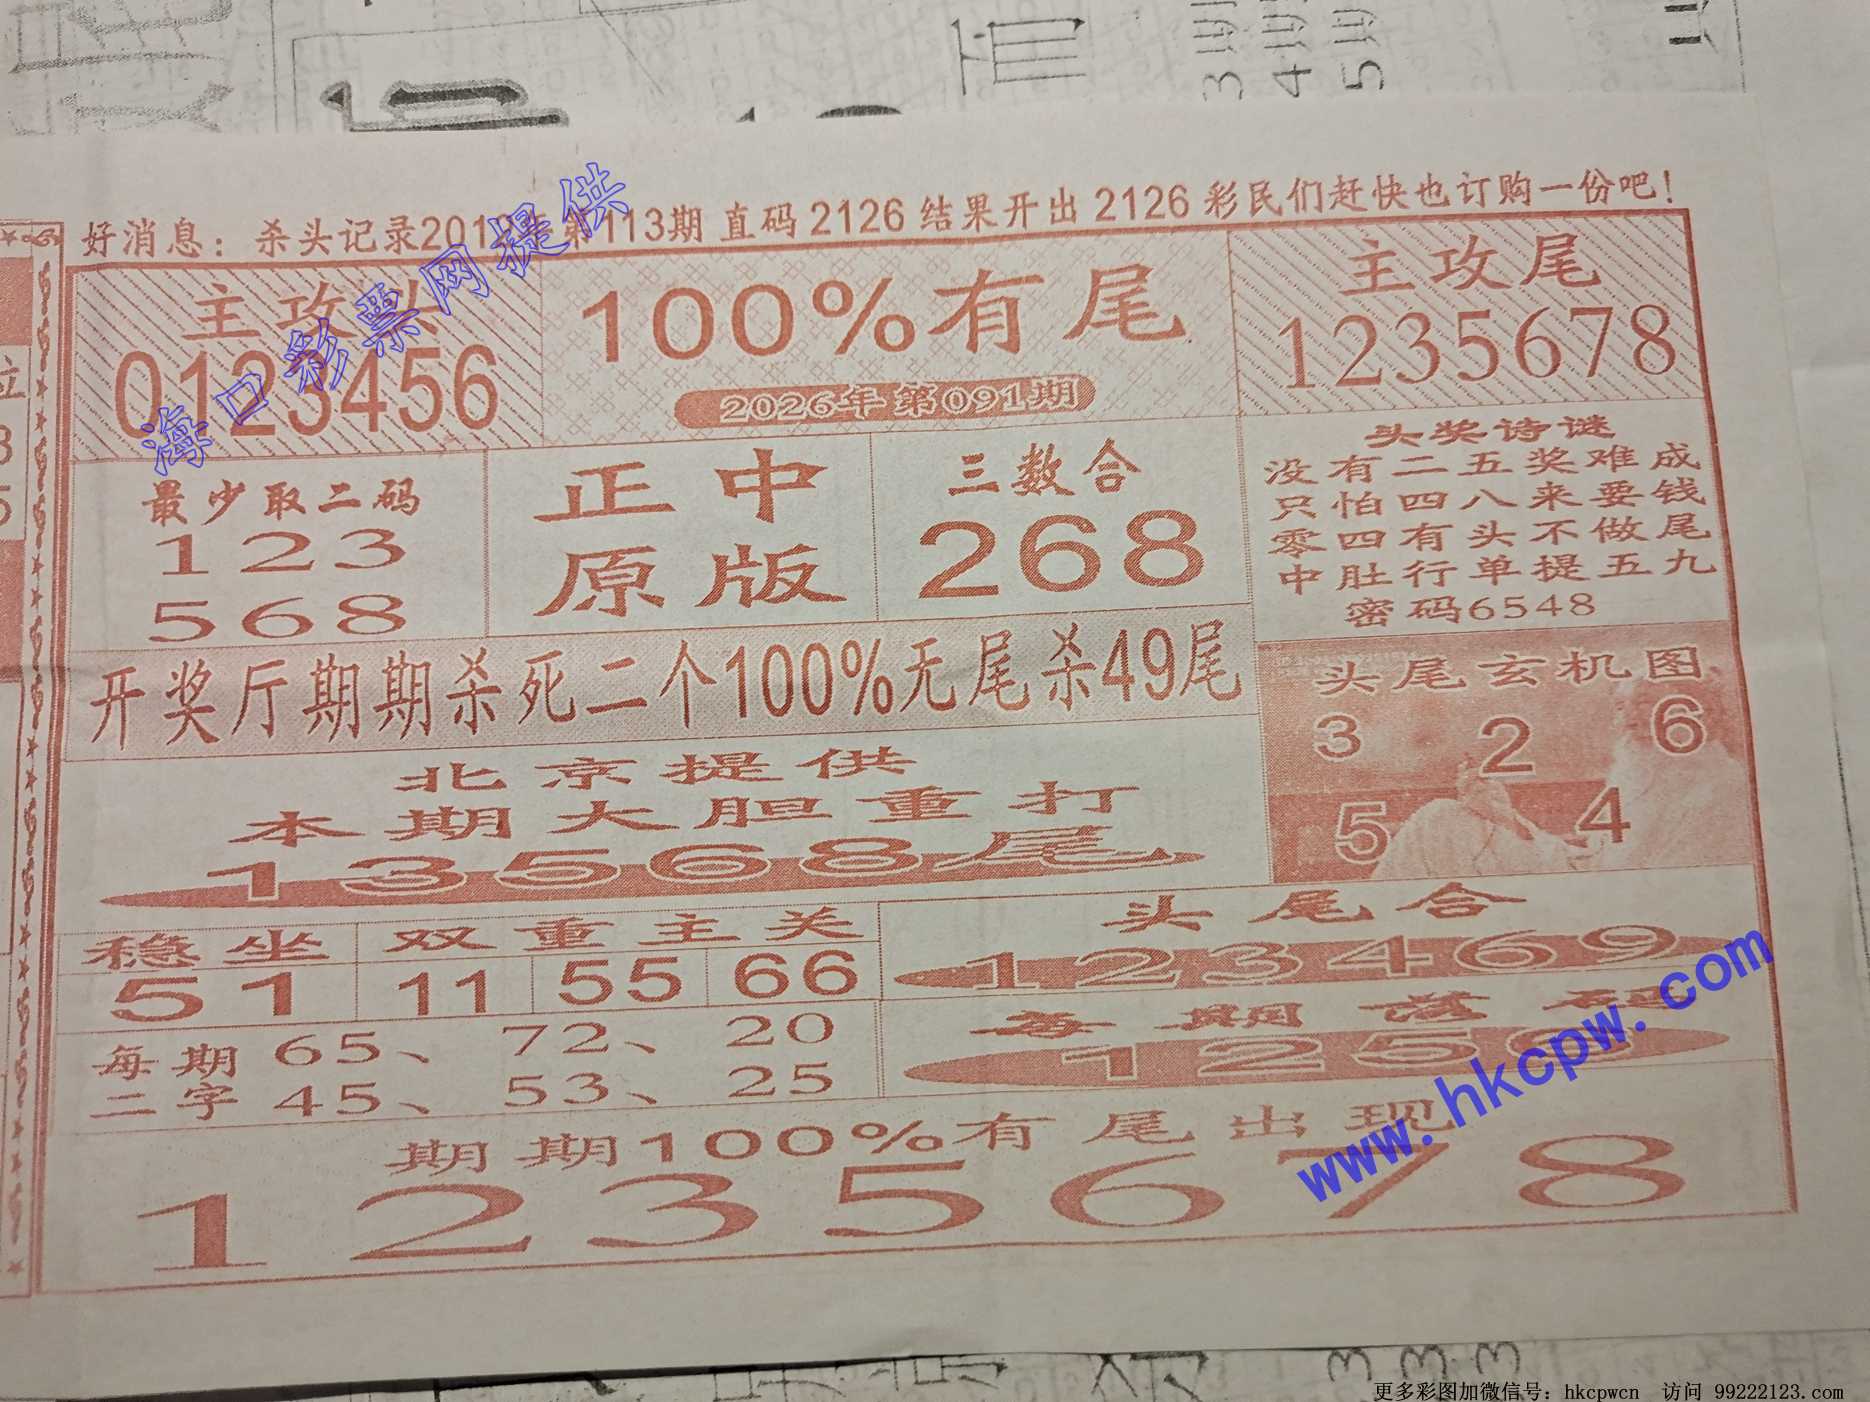 好消息：杀头记录201 年第113期 直码 2126 结果开出 2126 彩民们赶快也订购一份吧！
主攻头
0123456
100%有尾
2026年第091期
主攻尾
1235678
最少取二码
123
568
正中
原版
三数合
268
头奖诗谜
没有二五奖难成
只怕四八来要钱
零四有头不做尾
中肚行单提五九
密码6548
开奖厅期期杀死二个100%无尾杀49尾
头尾玄机图
3 2 6
5 4
北京提供
本期大胆重打
13568尾
稳坐
51
双重主关
11 55 66
头尾合
123469
每期 65、 72、 20
二字 45、 53、 25
每期
125
期期100%有尾出现
1235678
海口彩票网提供
www.hkcpw.com
更多彩图加微信号：hkcpwcn 访问 99222123.com
面
3
4
5
3
3
3